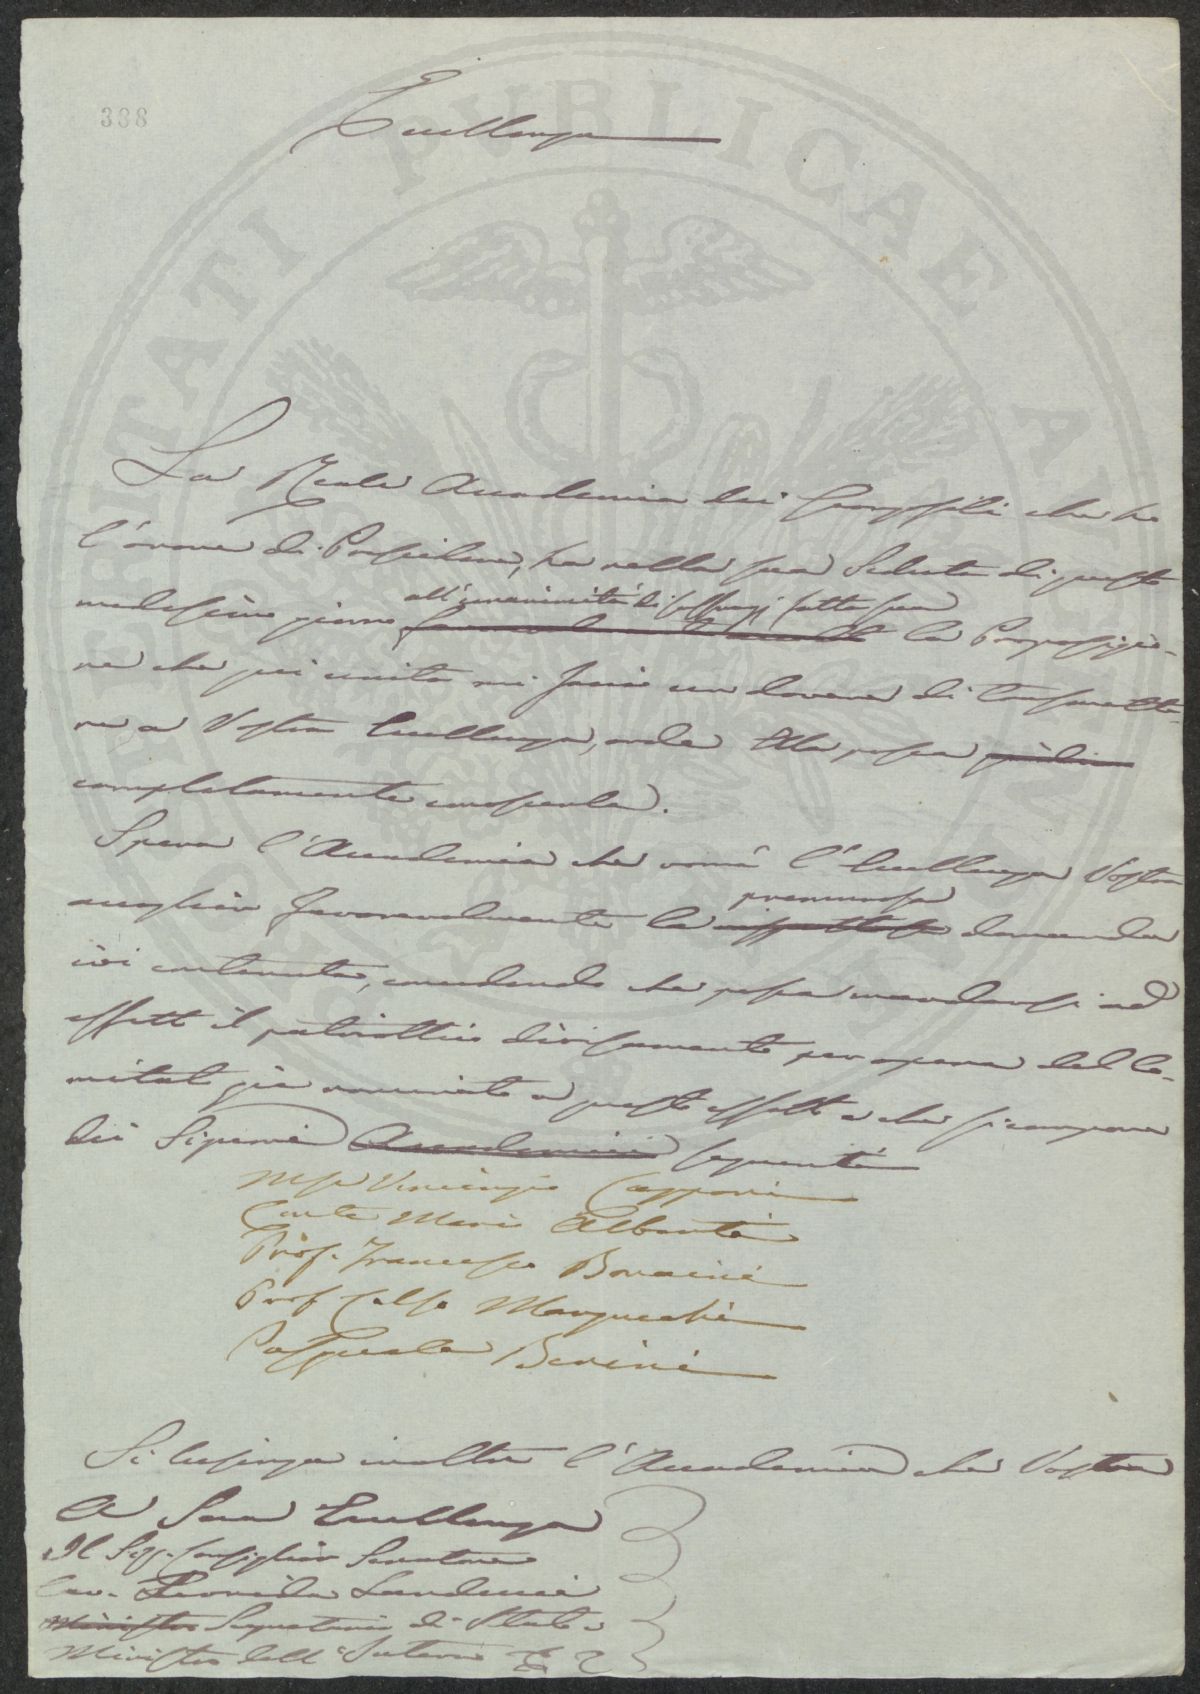 338
Eccellenza
La Reale Accademia dei Georgofili che ho
l'onore di Presiedere, ha nella sua Seduta di questo
medesimo giorno all'unanimità di suffragj fatta sua la Proposizio-
ne che qui unita mi faccio un dovere di trasmette-
re a Vostra Eccellenza, onde Ella possa
completamente conoscerla.
Spera l'Accademia che vorrà l'Eccellenza Vostra
accogliere favorevolmente la premurosa domanda
ivi contenuta, concedendo che possa mandarsi ad
effetto il patriottico divisamento per opera del Co-
mitato già nominato a questo effetto e che si compone
dei Signori Accademici seguenti
Mse Vincenzio Capponi
Conte Mario Alberti
Prof. Francesco Bonaini
Prof Celso Marzucchi
Pasquale Benini
Si lusinga inoltre l'Accademia che Vostra
A Sua Eccellenza
Il Sig. Consigliere Senatore
Cav. Leonida Landucci
Ministro Segretario di Stato
Ministro dell'Interno
PROSPERITATI PUBLICAE AUGENDAE